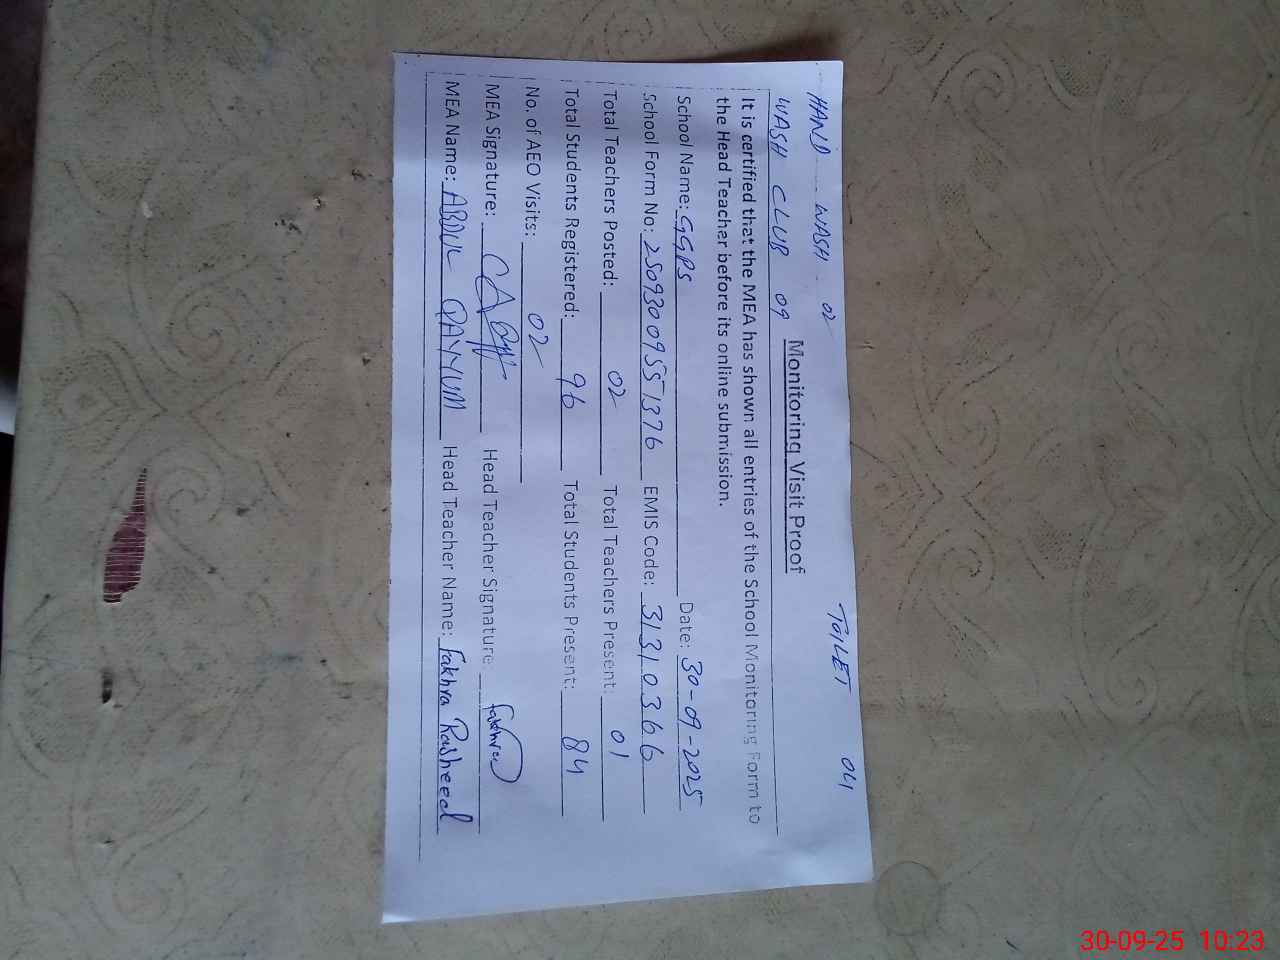 HAND WASH 02 TOILET 04
WASH CLUB 09
Monitoring Visit Proof
It is certified that the MEA has shown all entries of the School Monitoring Form to
the Head Teacher before its online submission.
School Name: GGPS Date: 30-09-2025
School Form No: 25093009551376 EMIS Code: 31310366
Total Teachers Posted: 02 Total Teachers Present: 01
Total Students Registered: 96 Total Students Present: 84
No. of AEO Visits: 02
MEA Signature: Head Teacher Signature: fakhra
MEA Name: ABDUL QAYYUM Head Teacher Name: fakhra Rasheed
30-09-25 10:23